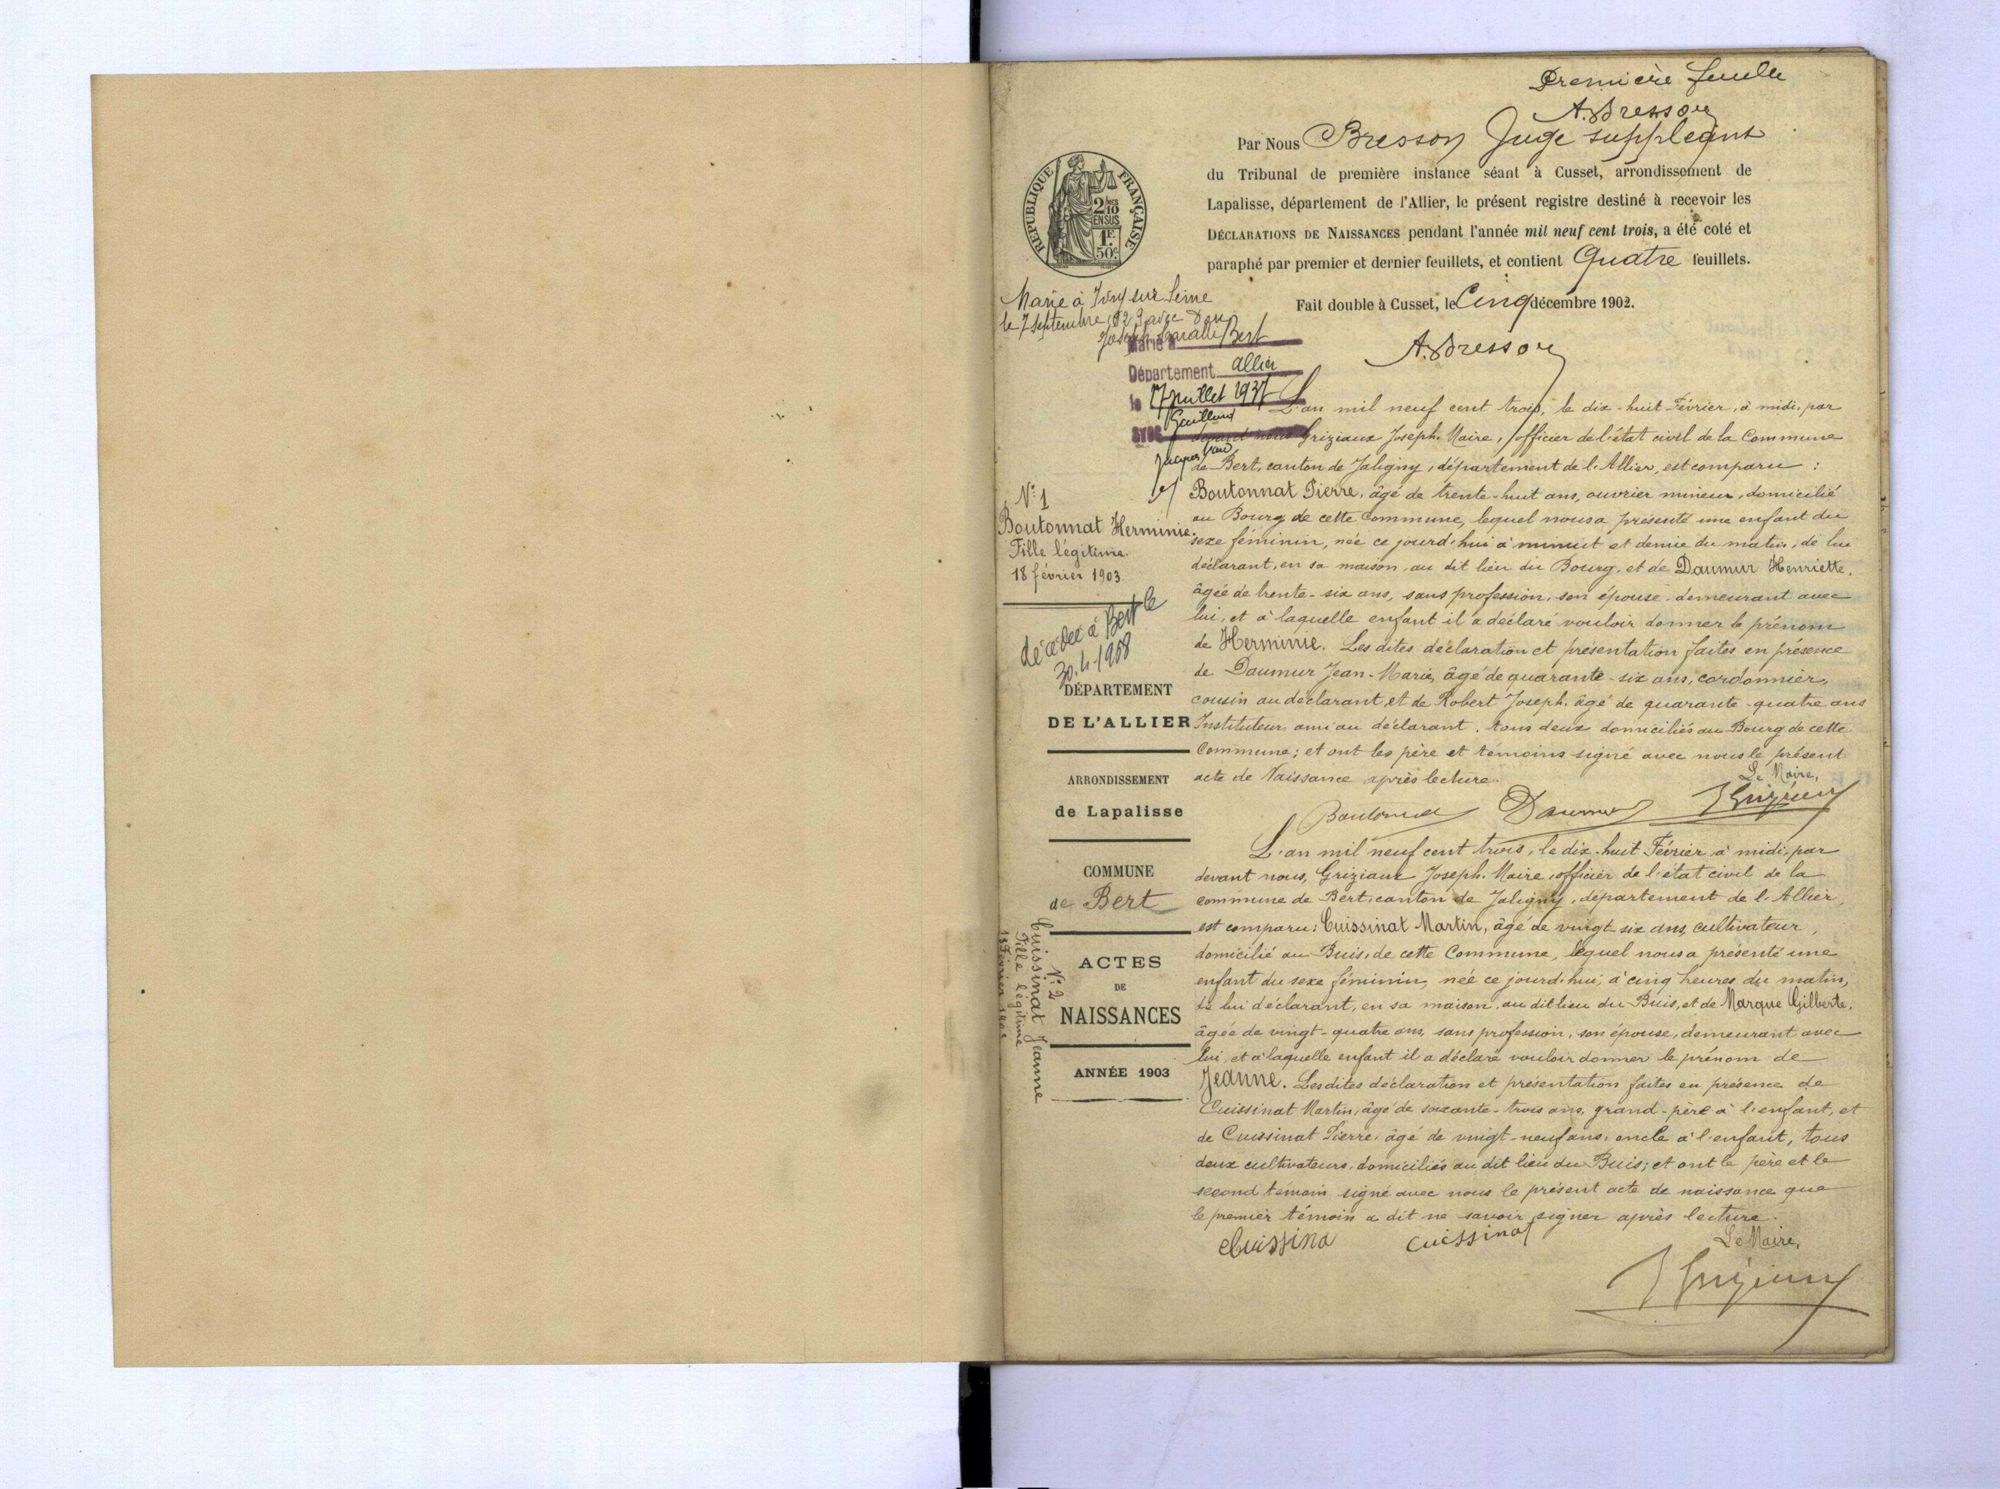 Première feuille
A. Bresson
Par Nous Bresson Juge suppléant
du Tribunal de première instance séant à Cusset, arrondissement de
Lapalisse, département de l'Allier, le présent registre destiné à recevoir les
DÉCLARATIONS DE NAISSANCES pendant l'année mil neuf cent trois, a été coté et
paraphé par premier et dernier feuillets, et contient Quatre feuillets.
Fait double à Cusset, le Cinq décembre 1902.
A. Bresson
RÉPUBLIQUE FRANÇAISE
2/10
EN SUS
1F
50c
Marié à Ivry sur Seine
le 7 septembre 1923 avec
Joseph
Marié à Bert
Département Allier
le 17 juillet 193
avec
Jacques
N° 1
Boutonnat Herminie.
Fille légitime.
18 février 1903
décédée à Bert le
30.4.1968
DÉPARTEMENT
DE L'ALLIER
ARRONDISSEMENT
de Lapalisse
COMMUNE
de Bert
ACTES
DE
NAISSANCES
ANNÉE 1903
N° 2
Cuissinat Jeanne
Fille légitime
18 Février 1903
L'an mil neuf cent trois, le dix-huit Février, à midi, par
devant nous Griziaux Joseph, Maire, officier de l'état civil de la Commune
de Bert, canton de Jaligny, département de l'Allier, est comparu :
Boutonnat Pierre, âgé de trente-huit ans, ouvrier mineur, domicilié
au Bourg de cette Commune, lequel nous a présenté une enfant du
sexe féminin, née ce jourd'hui à minuit et demie du matin, de lui
déclarant, en sa maison au dit lieu du Bourg, et de Daumur Henriette,
âgée de trente-six ans, sans profession, son épouse, demeurant avec
lui, et à laquelle enfant il a déclaré vouloir donner le prénom
de Herminie. Les dites déclaration et présentation faites en présence
de Daumur Jean-Marie, âgé de quarante-six ans, cordonnier,
cousin au déclarant, et de Robert Joseph, âgé de quarante-quatre ans
Instituteur, ami au déclarant, tous deux domiciliés au Bourg de cette
Commune ; et ont les père et témoins signé avec nous le présent
acte de Naissance après lecture.
Le Maire,
Boutonnat Daumur J Griziaux
L'an mil neuf cent trois, le dix-huit Février à midi, par
devant nous, Griziaux Joseph, Maire, officier de l'état civil de la
commune de Bert, canton de Jaligny, département de l'Allier,
est comparu : Cuissinat Martin, âgé de vingt six ans, cultivateur,
domicilié au Buis, de cette Commune, lequel nous a présenté une
enfant du sexe féminin, née ce jourd'hui, à cinq heures du matin,
de lui déclarant, en sa maison, au dit lieu du Buis, et de Marque Gilberte,
âgée de vingt-quatre ans, sans profession, son épouse, demeurant avec
lui, et à laquelle enfant il a déclaré vouloir donner le prénom de
Jeanne. Lesdites déclaration et présentation faites en présence de
Cuissinat Martin, âgé de soixante-trois ans, grand-père à l'enfant, et
de Cuissinat Pierre, âgé de vingt-neuf ans, oncle à l'enfant, tous
deux cultivateurs, domiciliés au dit lieu du Buis ; et ont le père et le
second témoin signé avec nous le présent acte de naissance que
le premier témoin a dit ne savoir signer après lecture.
Cuissina Cuissinat Le Maire,
J Griziaux